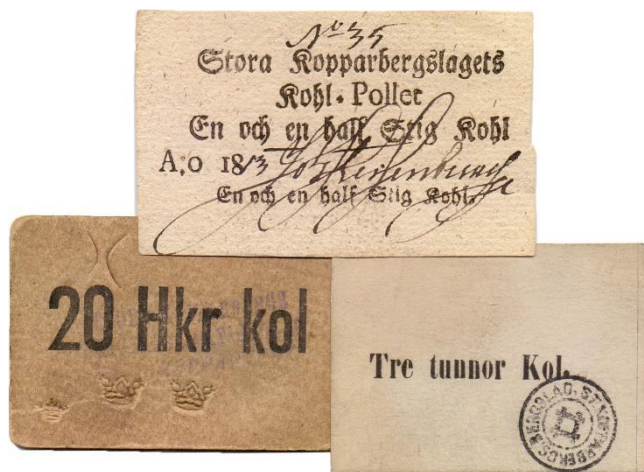 No 35
Stora Kopparbergslagets
Kohl-Pollet
En och en half Stig Kohl
A:o 1813
En och en half Stig Kohl.
20 Hkr kol
Tre tunnor Kol.
ST. KOPPARBERGS BERGSLAG.